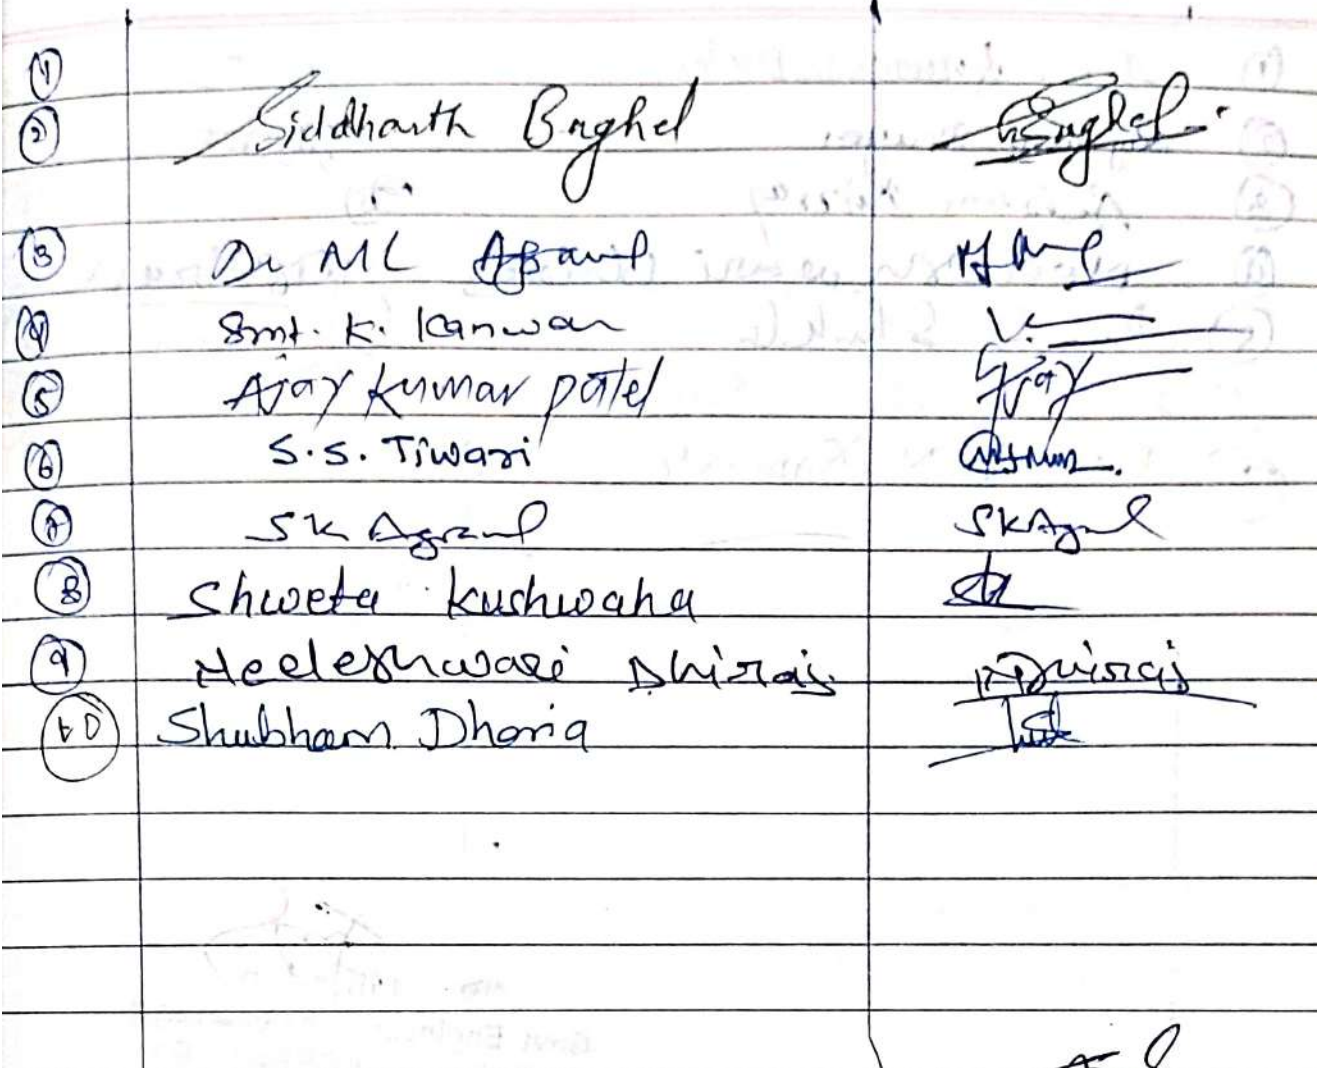 ①
② Siddharth Baghel Baghel
③ Dr ML Agrawal
④ Smt. K. Kanwar
⑤ Ajay Kumar Patel Ajay
⑥ S.S. Tiwari
⑦ SK Agrawal SKAgrawal
⑧ Shweta Kushwaha
⑨ Neeleshwari Dhiraj NDhiraj
⑩ Shubham Dhoria